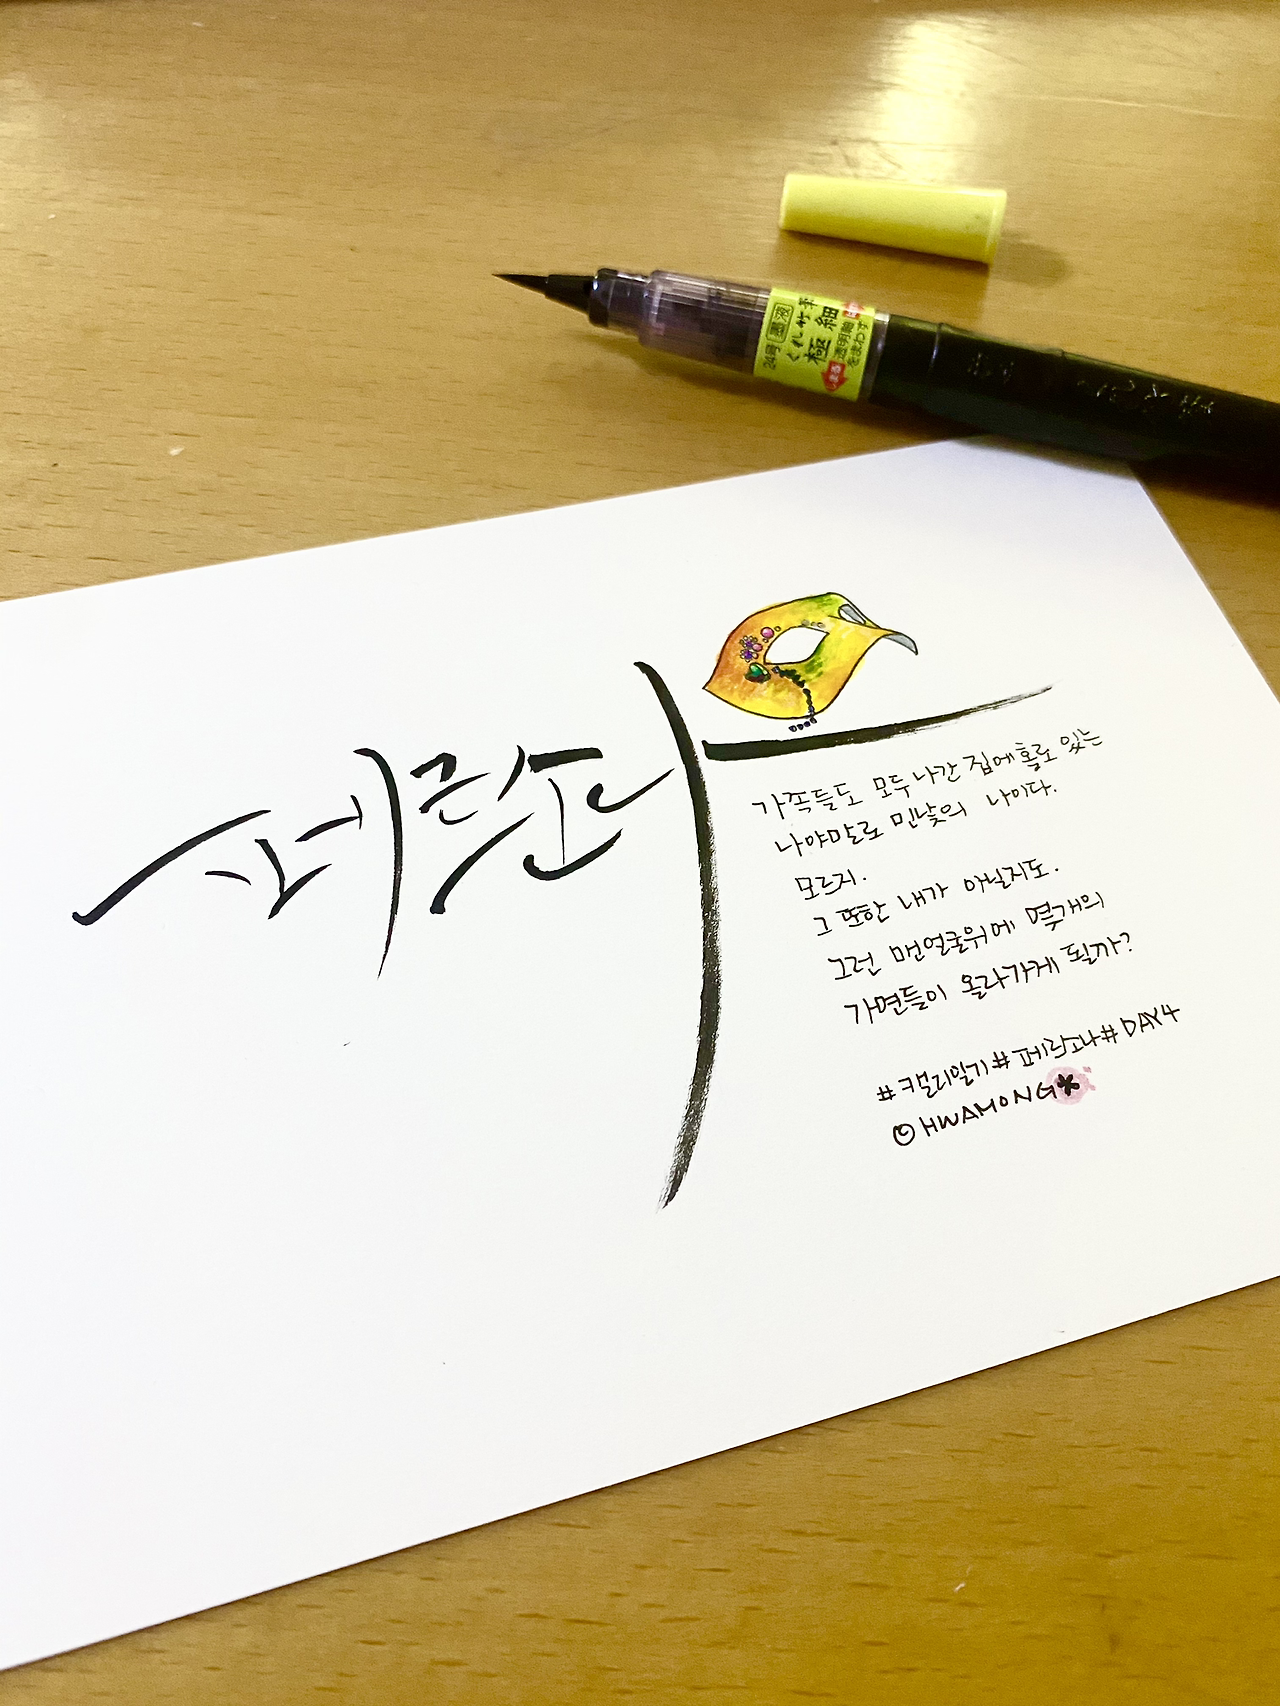 24号 墨液
くれ竹筆
極細
透明軸
をまわす
페르소나
가족들도 모두 나간 집에 홀로 있는
나야말로 민낯의 나이다.
모르지.
그 또한 내가 아닐지도.
그런 맨얼굴위에 몇개의
가면들이 올라가게 될까?
#캘리일기#페르소나#DAY4
©HWAHONG